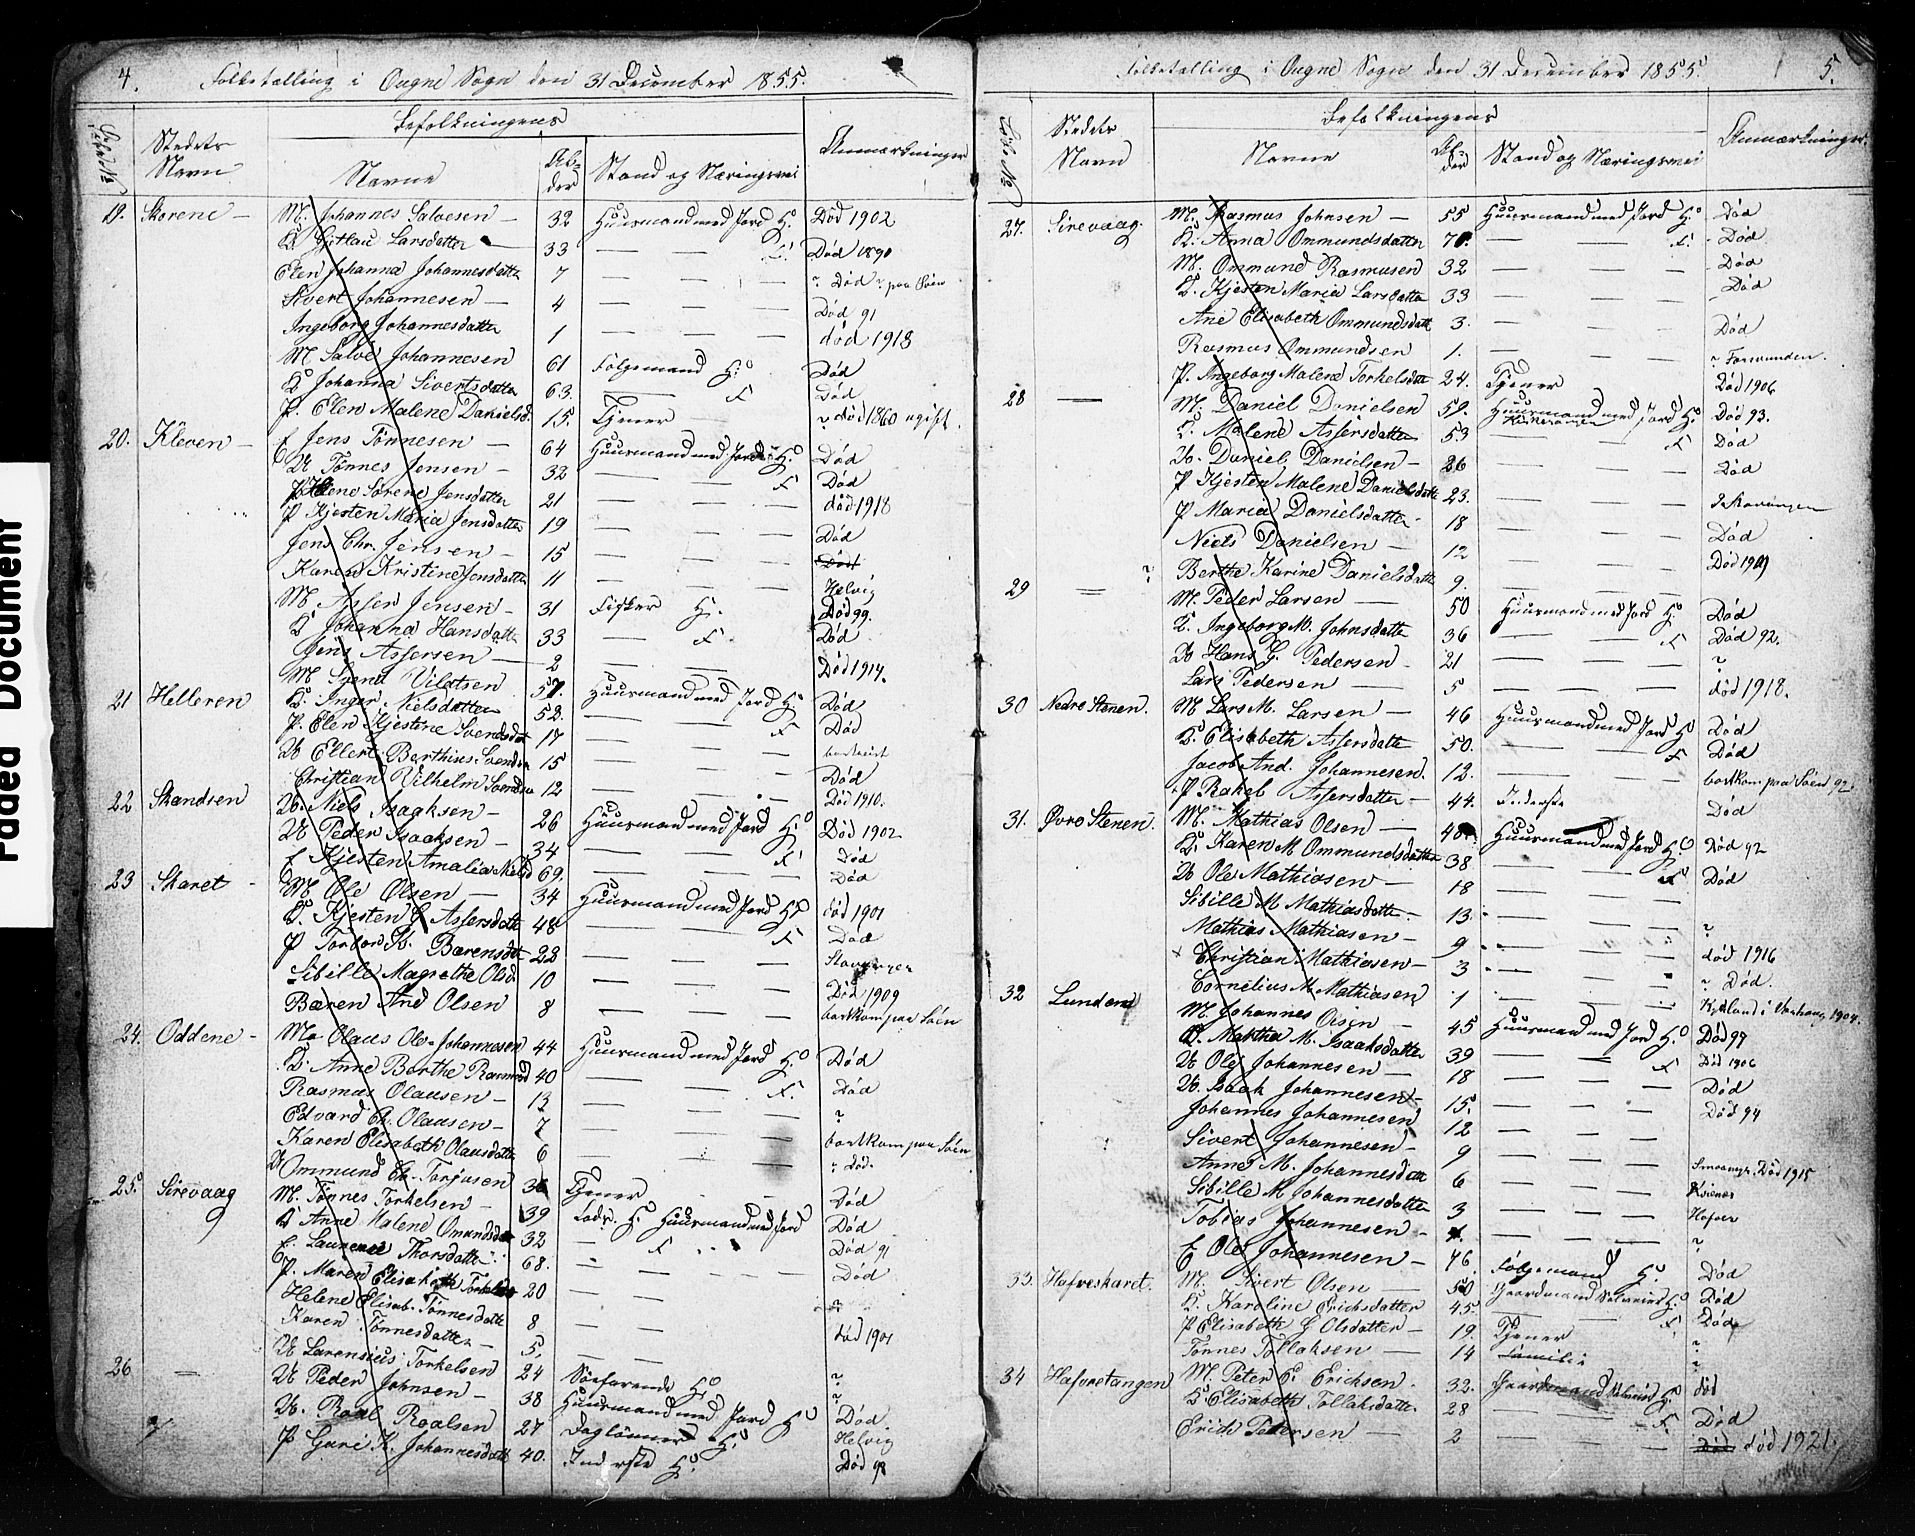 4. Folketælling i Ougne Sogn den 31 December 1855.
Befolkningens
Stedets Navn Navne Alder Stand og Næringsvei Anmærkninger
19. Skorene — M. Johannes Salvesen — 32 Huusmand med Jord H. Død 1902
K Gitlau Larsdatter — 33 — — F. Død 1890
Elen Johanna Johannesdatter 7 — — ? Død ? paa Søen
Sivert Johannesen — 4 — — Død 91
Ingeborg Johannesdatter 1 — — død 1918
M Salve Johannesen 61 Folgemand H. Død
K Johanna Sivertsdatter 63. — F Død
P. Elen Malene Danielsd. 15. Tjener ? død 1860 ugift.
20. Kleven — E Jens Tønnesen — 64 Huusmand med Jord H. Død
U Tønnes Jensen — 32 — — F Død
P Helene Sørene Jensdatter 21 — — død 1918
P Kjesten Maria Jensdatter 19 — — Død
Jens Chr. Jensen — 15 — — Død
Karen Kristine Jensdatter 11 — — Helvig
M Asser Jensen — 31 Fisker H. Død 99.
K Johanna Hansdatter 33 — F. Død
Jens Assersen — 2 — — Død 1914.
21 Helleren M Svend Vilatsen 57. Huusmand med Jord H. Død
K. Inger Nielsdatter 52. — — F Død
P. Elen Kjestine Svendsdat 17 — — bortreist
U Ellert Berthius Svendsen 15 — — Død
Christian Vilhelm Svendsen 12 — — Død 1910.
22 Skandsen U. Niels Isaaksen — 26 Huusmand med Jord H. Død 1902
U Peder Isaaksen — 34 — — F. Død
E Kjesten Amalia Nielsd 69. — — Død
23 Skaret — M Ole Olsen — 34 Huusmand med Jord H. død 1901
K. Kjesten G Assersdatter 48 — — F Død
P Torbor K. Børensdat 22 — — Stavanger
Sibille Magrethe Olsd. 10 — — Død 1909
Børen And Olsen 8 — — bortkom paa Søen
24. Oddene — M. Olaus Ols. Johannesen 44 Huusmand med Jord H. Død
K. Anne Berthe Rasmusd 40 — — F. Død
Rasmus Olausen — 13 — — ?
Edvard Ch. Olausen — 7 — — bortkom paa Søen
Karen Elisabeth Olausdatter 6 — — ? død.
U Ommund Ch. Torjusen 36 Tjener Død
25. Sirevaag M. Tønnes Torkelsen — 39 Lods. H. Huusmand med Jord Død
K Anne Malene Omundsdat 32 — F Død 91
E. Laurense Thorsdatter 68. — — Død
P. Maren Elisabeth Torkelsd 20 — — ?
Helene Elisab. Tønnesdatter 8 — — død 1901
Karen Tønnesdatter — 5. — —
U Larensius Torkelsen 24 Søefarende H. ?
26 — U Peder Johnsen — 38 Huusmand med Jord H. ?
U. Roal Roalsen 27 Daglønner H. Død Helvig
P Guri K. Johannesdatter 40. Inderste H. Død 98
Folketælling i Ougne Sogn den 31 December 1855. 5.
Befolkningens
Stedets Navn Navne Alder Stand og Næringsvei Anmærkninger
27. Sirevaag. M. Rasmus Johnsen — 55 Huusmand med Jord H. Død
K. Anna Ommundsdatter 70. — — F. Død
M. Ommund Rasmusen 32 — — Død
K. Kjesten Maria Larsdatter 33 — — Død
Ane Elisabeth Ommundsdatt 3. — — Død
Rasmus Ommundsen 1. — — ? Forsvunden.
P. Ingeborg Malene Torkelsdat 24. Tjener Død 1906
28 — M. Daniel Danielsen 59. Huusmand med Jord H. Død 93.
Kirkesanger
K. Malene Assersdatter 53 — — F Død
U. Daniel Danielsen — 26 — — Død
P Kjesten Malene Danielsdatt 23. — — I Stavanger
P Maria Danielsdatter 18 — — Død
Niels Danielsen — 12 — — Død 1909
? Berthe Karine Danielsdatter 9. — —
29 = M. Peder Larsen — 50 Huusmand med Jord H. Død
K. Ingeborg M. Johnsdatter 36 — — F Død 92.
U Hans G. Pedersen — 21 — — ?
Lars Pedersen — 5 — — død 1918.
30 Nedre Stenen. M Lars M. Larsen — 46 Huusmand med Jord H Død
K. Elisabeth Assersdatter 50. — — F Død
Jacob And. Johannesen. 12. — — bortkom paa Søen 92
P Rakel Assersdatter — 44. Inderste Død
31. Øvre Stenen. M. Mathias Olsen — 40 Huusmand med Jord H. død 92
K. Karen M Ommundsdatter 38 — — F Død
U Ole Mathiasen — 18 — —
Sibille M Mathiasdatter — 13. — — ?
Mathias Mathiasen — 9 — — død 1916
+ Christian Mathiasen — 3 — — ? Død.
Cornelius M. Mathiasen 1 — — Kydland i Varhaug 1904.
32 Lundene M. Johannes Olsen — 45 Huusmand med Jord H. Død 99
K. Martha M. Isaaksdatter 39 — — F Død 1906
U Ole Johannesen — 18 — — Død
U. Isaak Johannesen — 15. — — Død 94
Johannes Johannesen 12 — —
Sivert Johannesen — 9 — —
Anne M. Johannesdatt 6 — — Død 1915
Sibille M Johannesdatter 3 — —
Tobias Johannesen — 1. — — ?
E Ole Johannesen — 76. Folgemand H. Død
33. Hafreskaret. M. Sivert Olsen — 50 Gaardmand Selveier H. Død
K. Karoline Erichsdatter 45. — F. Død
P Elisabeth G Olsdatter — 19. Tjener ?
Tønnes Tollaksen — 14 Familie ?
34 Hafretangen M. Peter E. Erichsen. 32. Gaardmand Selveier H. død
K. Elisabeth Tollaksdatter 28 — — F. Død
Erich Petersen — 2 — — død 1921.
Faded Document